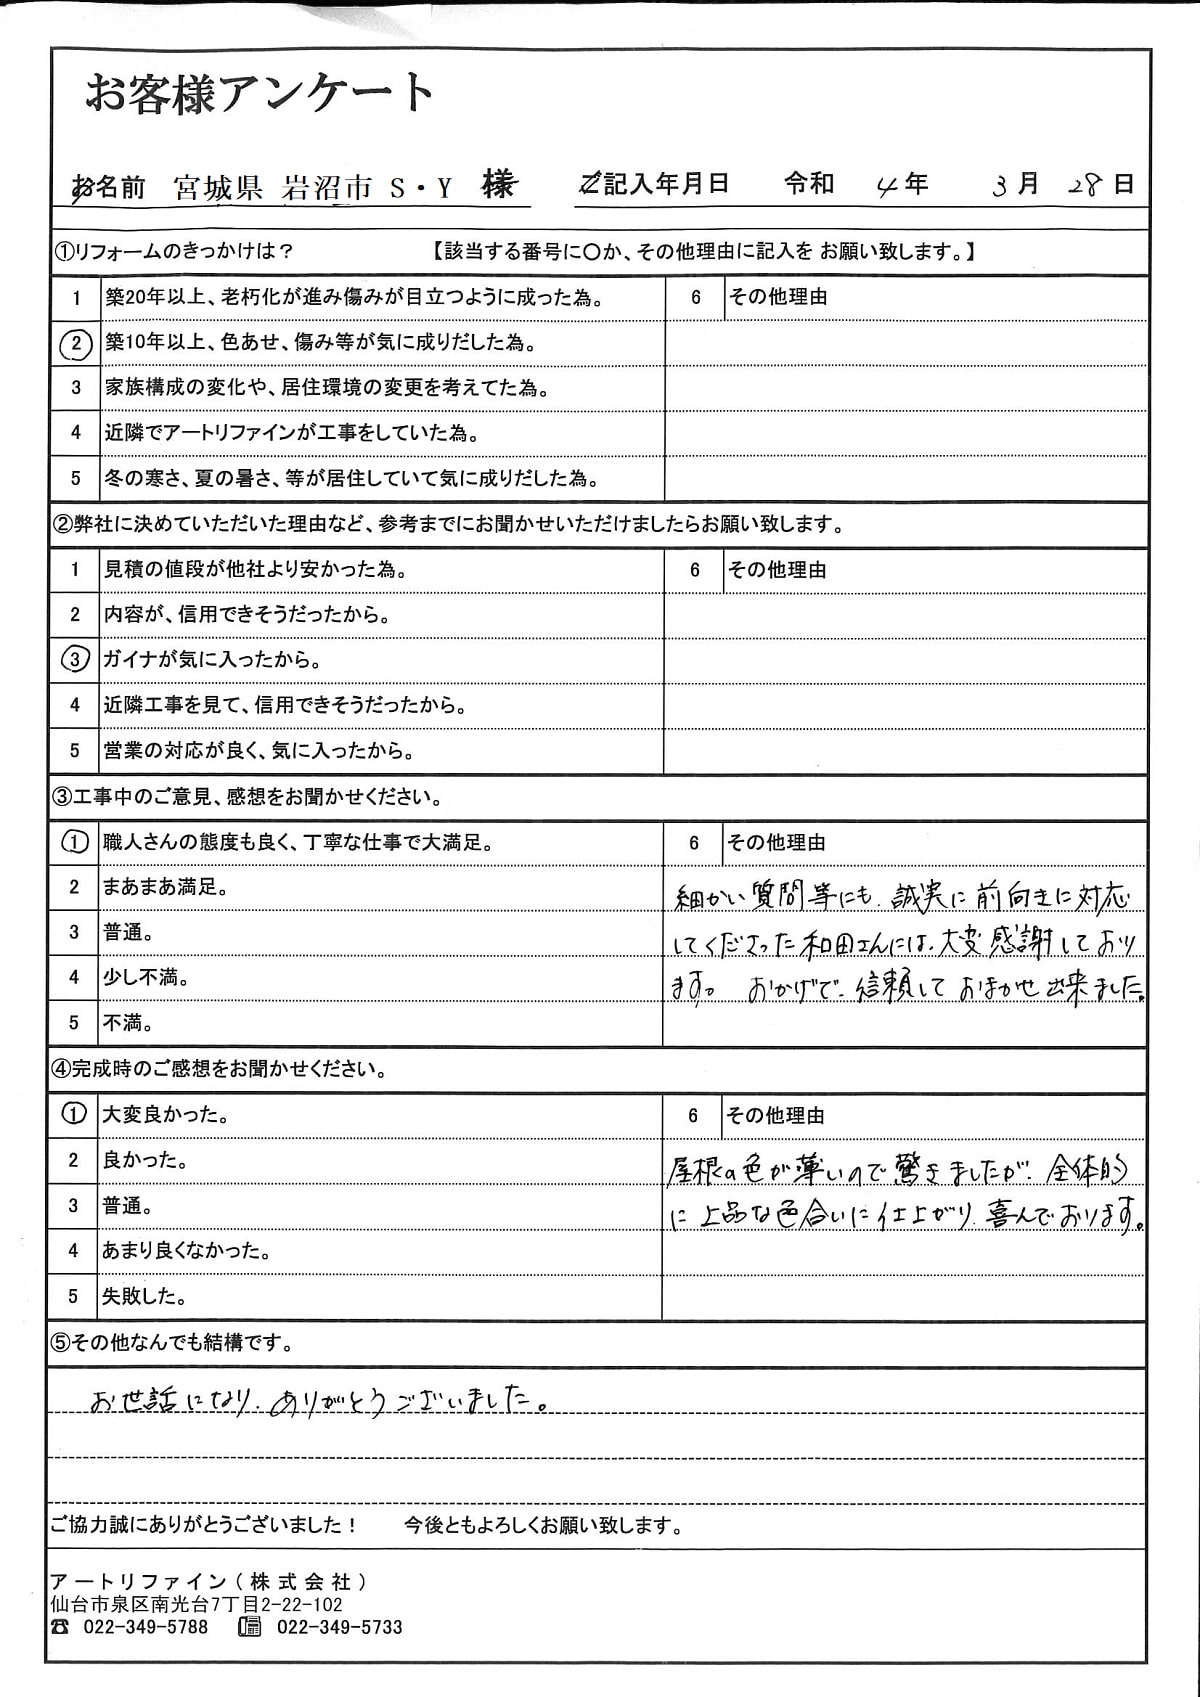 お客様アンケート
お名前 宮城県 岩沼市 S・Y 様 ご記入年月日 令和 4年 3月 28日
①リフォームのきっかけは？ 【該当する番号に〇か、その他理由に記入を お願い致します。】
1 築20年以上、老朽化が進み傷みが目立つように成った為。 6 その他理由
2 築10年以上、色あせ、傷み等が気に成りだした為。
3 家族構成の変化や、居住環境の変更を考えてた為。
4 近隣でアートリファインが工事をしていた為。
5 冬の寒さ、夏の暑さ、等が居住していて気に成りだした為。
②弊社に決めていただいた理由など、参考までにお聞かせいただけましたらお願い致します。
1 見積の値段が他社より安かった為。 6 その他理由
2 内容が、信用できそうだったから。
3 ガイナが気に入ったから。
4 近隣工事を見て、信用できそうだったから。
5 営業の対応が良く、気に入ったから。
③工事中のご意見、感想をお聞かせください。
1 職人さんの態度も良く、丁寧な仕事で大満足。 6 その他理由
2 まあまあ満足。 細かい質問等にも、誠実に前向きに対応
3 普通。 してくださった和田さんには、大変感謝しており
4 少し不満。 ます。 おかげで、信頼しておまかせ出来ました。
5 不満。
④完成時のご感想をお聞かせください。
1 大変良かった。 6 その他理由
2 良かった。 屋根の色が薄いので驚きましたが、全体的
3 普通。 に上品な色合いに仕上がり、喜んでおります。
4 あまり良くなかった。
5 失敗した。
⑤その他なんでも結構です。
お世話になり、ありがとうございました。
ご協力誠にありがとうございました！ 今後ともよろしくお願い致します。
アートリファイン(株式会社)
仙台市泉区南光台7丁目2-22-102
☎ 022-349-5788 📠 022-349-5733